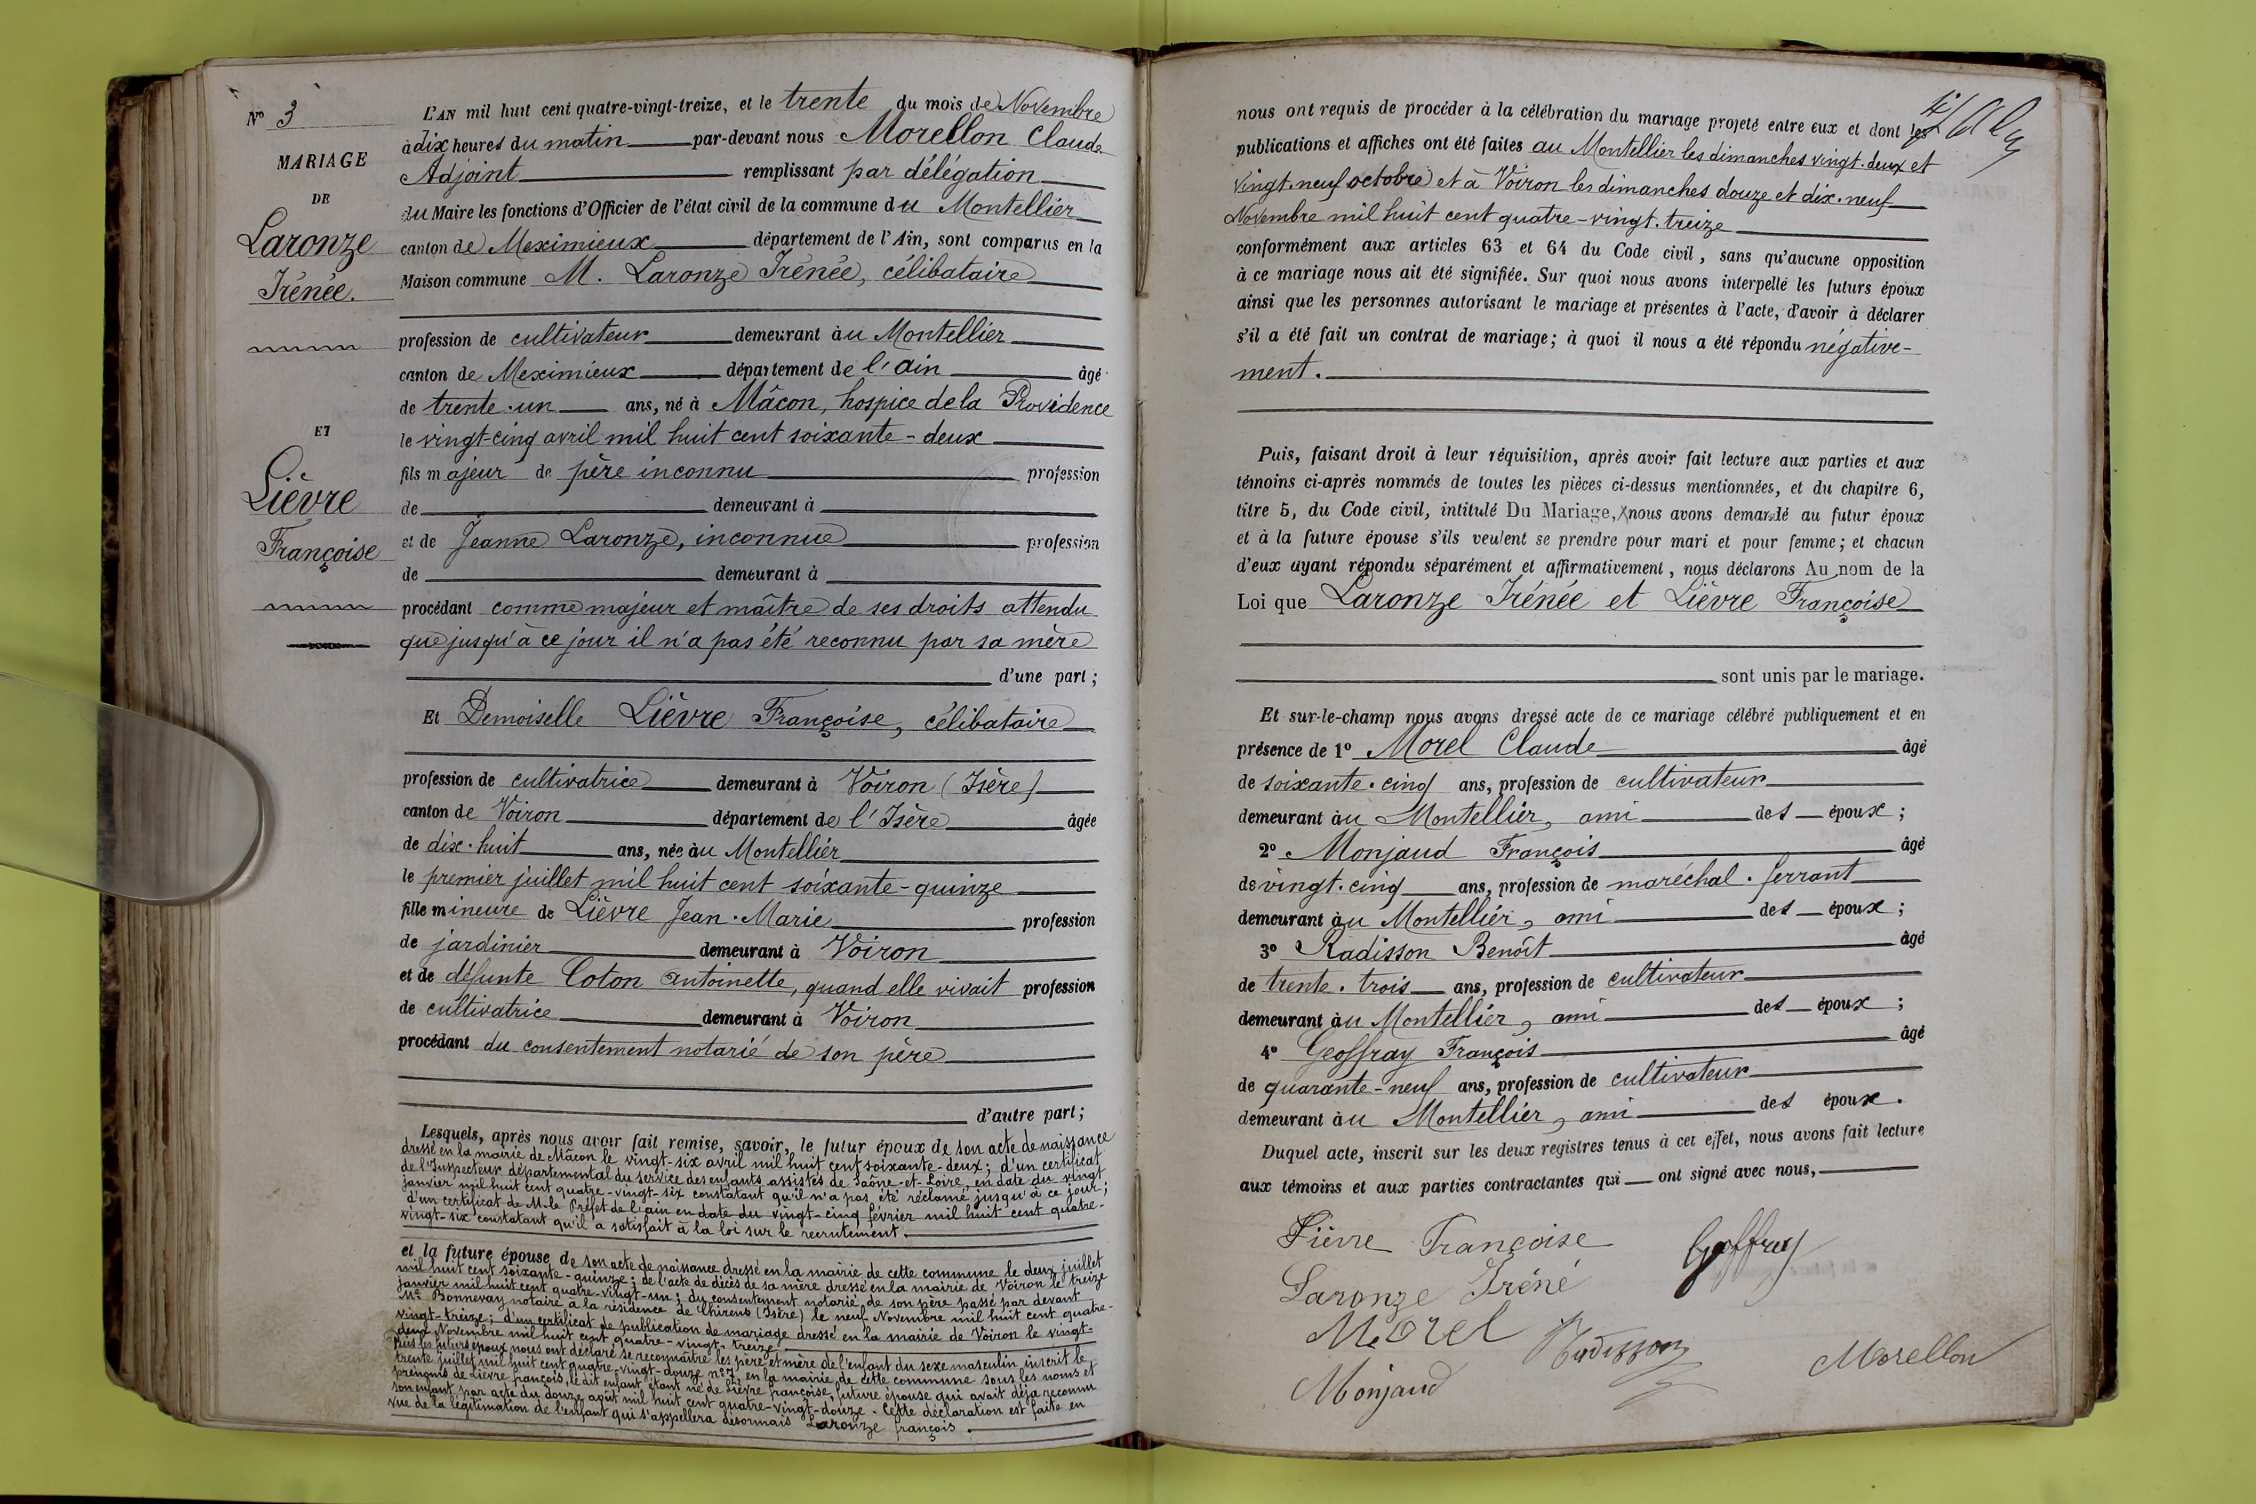 N° 3
MARIAGE
DE
Laronze
Irénée.
ET
Lièvre
Françoise
L'AN mil huit cent quatre-vingt-treize, et le trente du mois de Novembre
à dix heures du matin par-devant nous Morellon Claude
Adjoint remplissant par délégation
du Maire les fonctions d'Officier de l'état civil de la commune du Montellier
canton de Meximieux département de l'Ain, sont comparus en la
Maison commune M. Laronze Irénée, célibataire
profession de cultivateur demeurant àu Montellier
canton de Meximieux département de l'ain âgé
de trente-un ans, né à Mâcon, hospice de la Providence
le vingt-cinq avril mil huit cent soixante-deux
fils majeur de père inconnu profession
de demeurant à
et de Jeanne Laronze, inconnue profession
de demeurant à
procédant comme majeur et maître de ses droits attendu
que jusqu'à ce jour il n'a pas été reconnu par sa mère
d'une part;
Et Demoiselle Lièvre Françoise, célibataire
profession de cultivatrice demeurant à Voiron (Isère)
canton de Voiron département de l'Isère âgée
de dix-huit ans, née àu Montellier
le premier juillet mil huit cent soixante-quinze
fille mineure de Lièvre Jean-Marie profession
de jardinier demeurant à Voiron
et de défunte Coton antoinette, quand elle vivait profession
de cultivatrice demeurant à Voiron
procédant du consentement notarié de son père
d'autre part;
Lesquels, après nous avoir fait remise, savoir, le futur époux de son acte de naissance
dressé en la mairie de Mâcon le vingt-six avril mil huit cent soixante-deux; d'un certificat
de l'Inspecteur départemental du service des enfants assistés de Saône-et-Loire, en date du vingt
janvier mil huit cent quatre-vingt-six constatant qu'il n'a pas été réclamé jusqu'à ce jour;
d'un certificat de M. le Préfet de l'ain en date du vingt-cinq février mil huit cent quatre-
vingt-six constatant qu'il a satisfait à la loi sur le recrutement.
et la future épouse de son acte de naissance dressé en la mairie de cette commune le deux juillet
mil huit cent soixante-quinze; de l'acte de décès de sa mère dressé en la mairie de Voiron le treize
janvier mil huit cent quatre-vingt-un; du consentement notarié de son père passé par devant
Me Bonnevay notaire à la résidence de Chirens (Isère) le neuf Novembre mil huit cent quatre-
vingt-treize; d'un certificat de publication de mariage dressé en la mairie de Voiron le vingt-
deux Novembre mil huit cent quatre-vingt-treize
Puis les futurs époux nous ont déclaré se reconnaître les père et mère de l'enfant du sexe masculin inscrit le
trente juillet mil huit cent quatre-vingt-douze n° 7 en la mairie de cette commune sous les noms et
prénoms de Lièvre françois, ledit enfant étant né de Lièvre françoise, future épouse qui avait déjà reconnu
son enfant par acte du douze août mil huit cent quatre-vingt-douze. Cette déclaration est faite en
vue de la légitimation de l'enfant qui s'appellera désormais Laronze françois.
nous ont requis de procéder à la célébration du mariage projeté entre eux et dont les
publications et affiches ont été faites au Montellier les dimanches vingt-deux et
vingt-neuf octobre et à Voiron les dimanches douze et dix-neuf
Novembre mil huit cent quatre-vingt-treize
conformément aux articles 63 et 64 du Code civil, sans qu'aucune opposition
à ce mariage nous ait été signifiée. Sur quoi nous avons interpellé les futurs époux
ainsi que les personnes autorisant le mariage et présentes à l'acte, d'avoir à déclarer
s'il a été fait un contrat de mariage; à quoi il nous a été répondu négative-
ment.
Puis, faisant droit à leur réquisition, après avoir fait lecture aux parties et aux
témoins ci-après nommés de toutes les pièces ci-dessus mentionnées, et du chapitre 6,
titre 5, du Code civil, intitulé Du Mariage, nous avons demandé au futur époux
et à la future épouse s'ils veulent se prendre pour mari et pour femme; et chacun
d'eux ayant répondu séparément et affirmativement, nous déclarons Au nom de la
Loi que Laronze Irénée et Lièvre Françoise
sont unis par le mariage.
Et sur-le-champ nous avons dressé acte de ce mariage célébré publiquement et en
présence de 1° Morel Claude âgé
de soixante-cinq ans, profession de cultivateur
demeurant àu Montellier, ami des époux;
2° Monjaud François âgé
de vingt-cinq ans, profession de maréchal-ferrant
demeurant àu Montellier, ami des époux;
3° Radisson Benoît âgé
de trente-trois ans, profession de cultivateur
demeurant àu Montellier, ami des époux;
4° Geoffray François âgé
de quarante-neuf ans, profession de cultivateur
demeurant àu Montellier, ami des époux.
Duquel acte, inscrit sur les deux registres tenus à cet effet, nous avons fait lecture
aux témoins et aux parties contractantes qui ont signé avec nous,
Lièvre Françoise Geoffray
Laronze Iréné
Morel Radisson Morellon
Monjaud